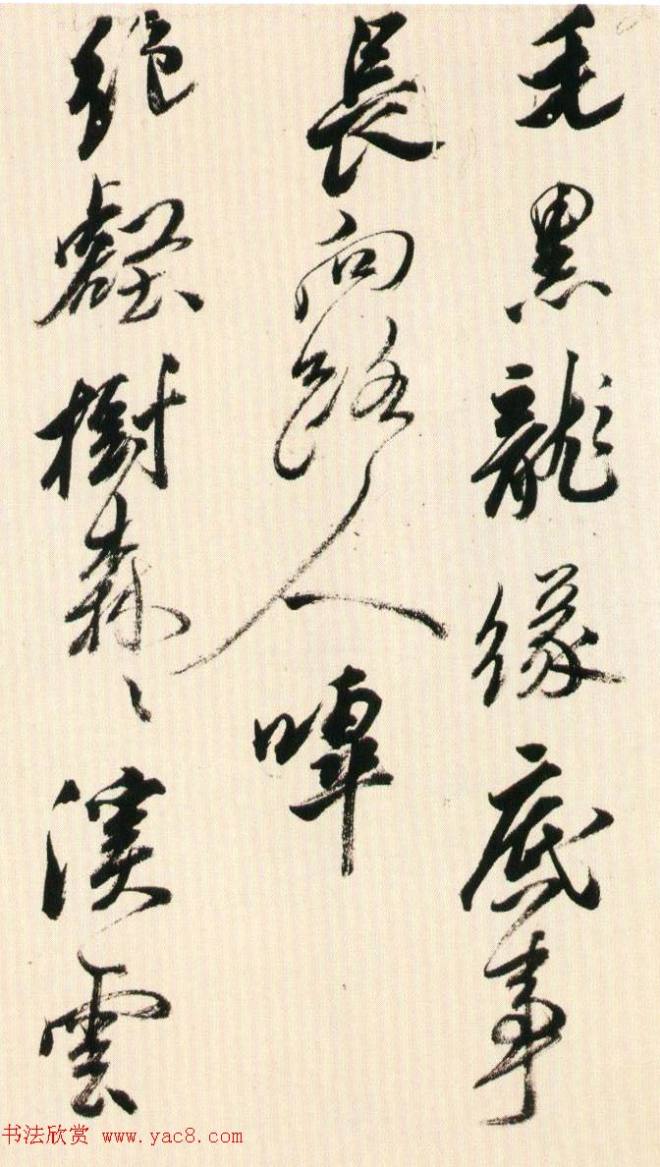 毛黑龍緣底事
長向路人嘷
絕壑樹森〻溪雲
书法欣赏 www.yac8.com